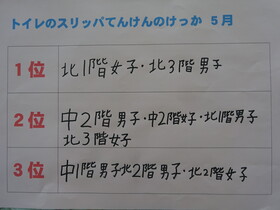 トイレのスリッパてんけんのけっか 5月
1位
北1階女子・北3階男子
2位
中2階男子・中2階女子・北1階男子
北3階女子
3位
中1階男子北2階男子・北2階女子